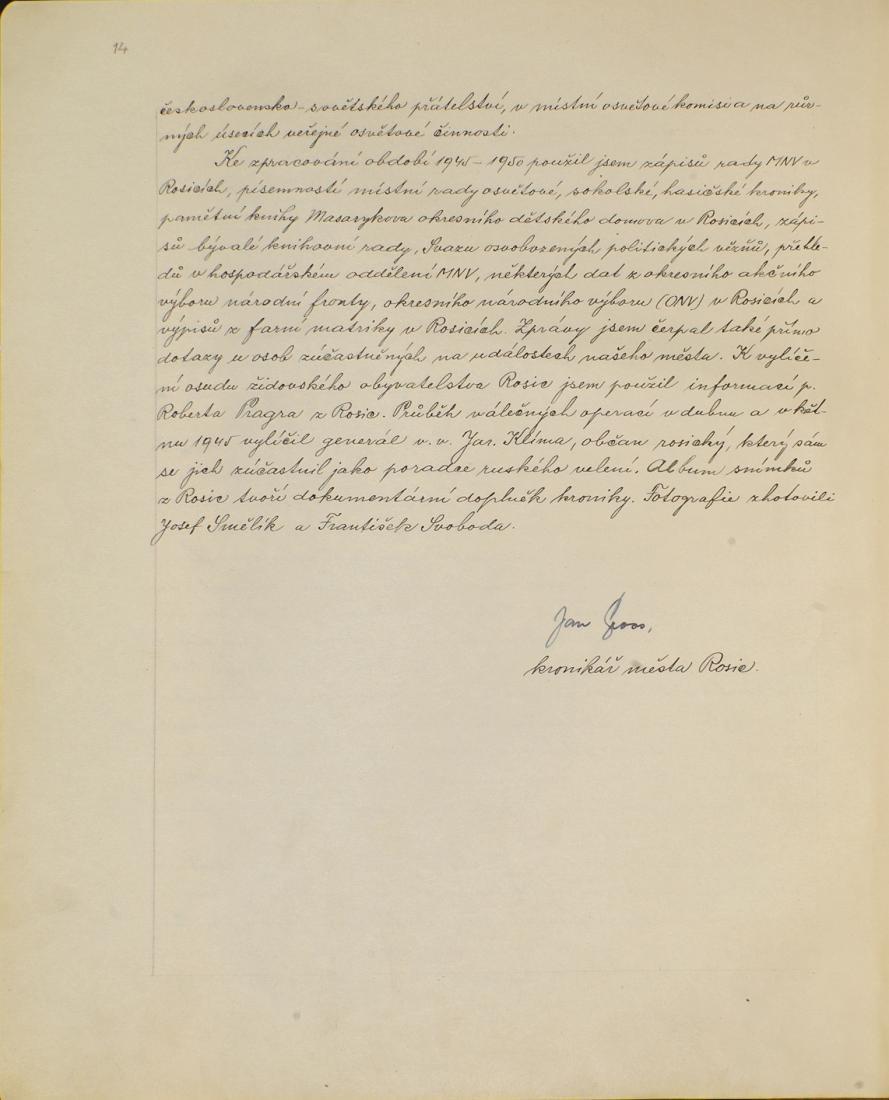 14
československo-sovětského přátelství, v místní osvětové komisi a na růz-
ných úsecích veřejné osvětové činnosti.
Ke zpracování období 1945-1950 použil jsem zápisů rady MNV v
Rosicích, písemností místní rady osvětové, sokolské, hasičské kroniky,
pamětní knihy Masarykova okresního dětského domova v Rosicích, zápi-
sů bývalé knihovní rady, Svazu osvobozených politických vězňů, přehle-
dů v hospodářském oddělení MNV, některých dat z okresního akčního
výboru národní fronty, okresního národního výboru (ONV) v Rosicích a
výpisů z farní matriky v Rosicích. Zprávy jsem čerpal také přímo
dotazy u osob zúčastněných na událostech našeho města. K vylíče-
ní osudu židovského obyvatelstva Rosic jsem použil informací p.
Roberta Pragra z Rosic. Průběh válečných operací v dubnu a v květ-
nu 1945 vylíčil generál v.v. Jar. Klíma, občan rosický, který sám
se jich zúčastnil jako poradce ruského velení. Album snímků
z Rosic tvoří dokumentární doplněk kroniky. Fotografie zhotovili
Josef Smělík a František Svoboda.
Jan
kronikář města Rosic.